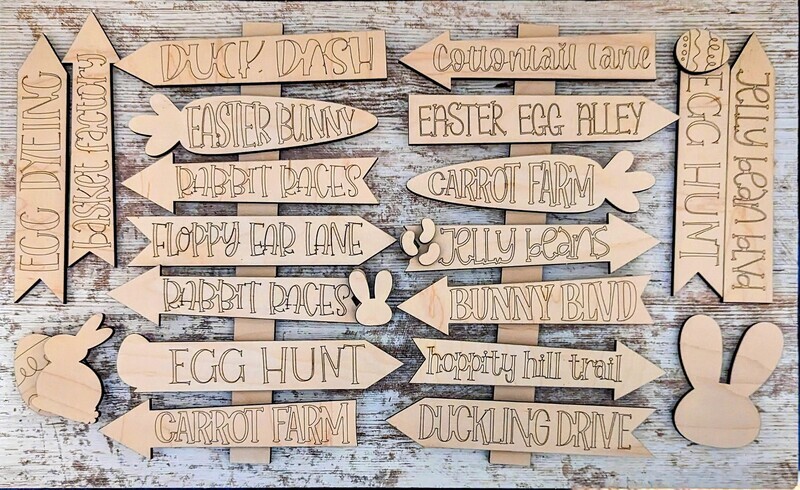 EGG DYEING
basket factory
DUCK DASH
EASTER BUNNY
RABBIT RACES
FLOPPY EAR LANE
RABBIT RACES
EGG HUNT
CARROT FARM
Cottontail lane
EASTER EGG ALLEY
CARROT FARM
Jelly beans
BUNNY BLVD
hoppity hill trail
DUCKLING DRIVE
EGG HUNT
Jelly bean blvd